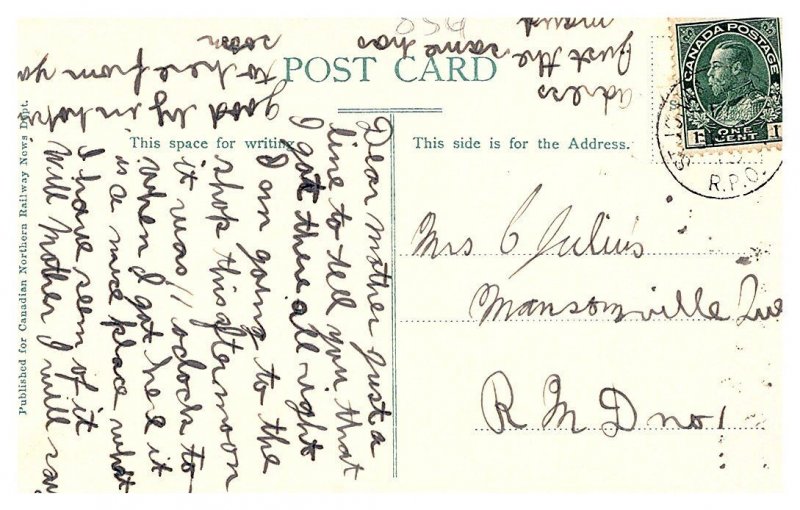 POST CARD
This space for writing
This side is for the Address.
Published for Canadian Northern Railway News Dept.
CANADA POSTAGE
1 ONE CENT 1
R.P.O.
Mrs C Julius
Mansonville Que
R M D no 1
Dear mother Just a
line to tell you that
I got there all right
I am going to the
shop this afternoon
it was 11 oclock to
when I got here it
is a nice place what
I have seem of it
Will Mother I will say
good by in
to here from yo
soon
adress
Just the same has